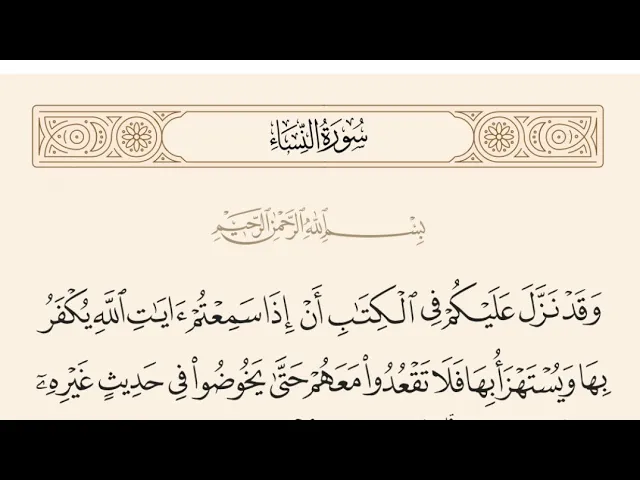 سُورَةُ النِّسَاءِ
بِسْمِ ٱللَّهِ ٱلرَّحْمَٰنِ ٱلرَّحِيمِ
وَقَدْ نَزَّلَ عَلَيْكُمْ فِى ٱلْكِتَٰبِ أَنْ إِذَا سَمِعْتُمْ ءَايَٰتِ ٱللَّهِ يُكْفَرُ
بِهَا وَيُسْتَهْزَأُ بِهَا فَلَا تَقْعُدُوا۟ مَعَهُمْ حَتَّىٰ يَخُوضُوا۟ فِى حَدِيثٍ غَيْرِهِۦٓ